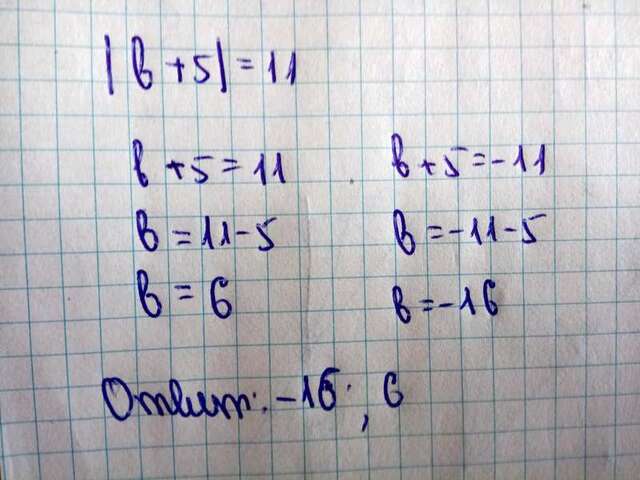 |в+5|=11
в+5=11
в=11-5
в=6
в+5=-11
в=-11-5
в=-16
Ответ: -16; 6